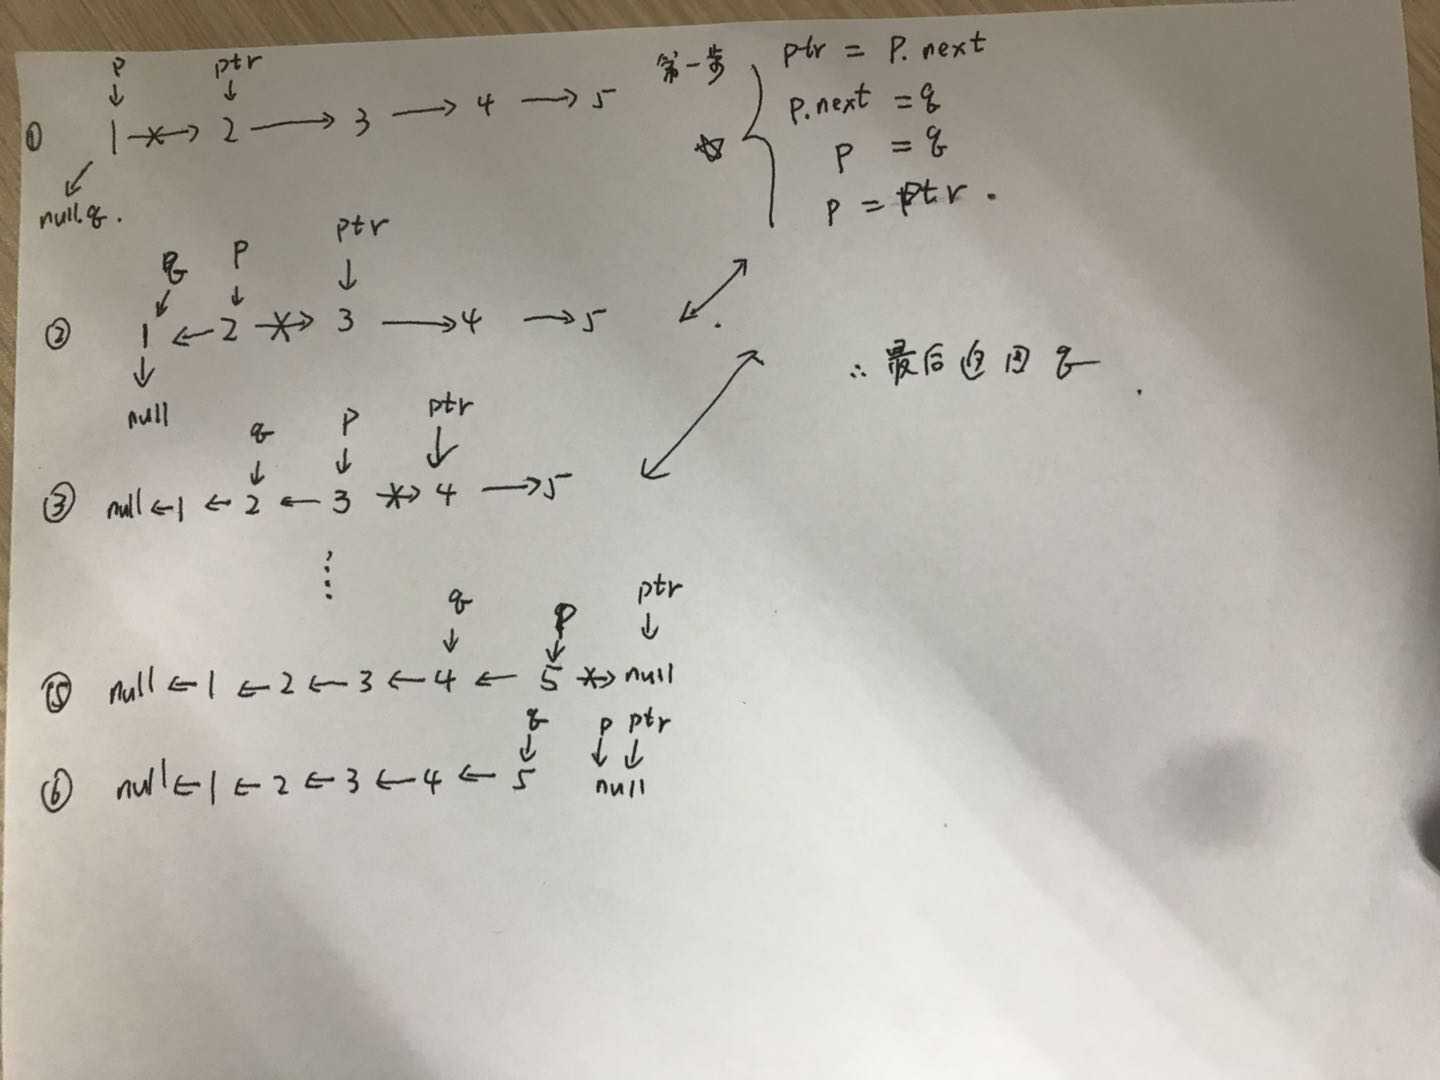 p ptr
① 1 → 2 → 3 → 4 → 5
null.q.
第一步
ptr = P.next
p.next = q
p = q
p = ptr.
q p ptr
② 1 ← 2 → 3 → 4 → 5
null
∴ 最后返回 q
q p ptr
③ null ← 1 ← 2 ← 3 → 4 → 5
q p ptr
⑤ null ← 1 ← 2 ← 3 ← 4 ← 5 → null
q p ptr
⑥ null ← 1 ← 2 ← 3 ← 4 ← 5 null